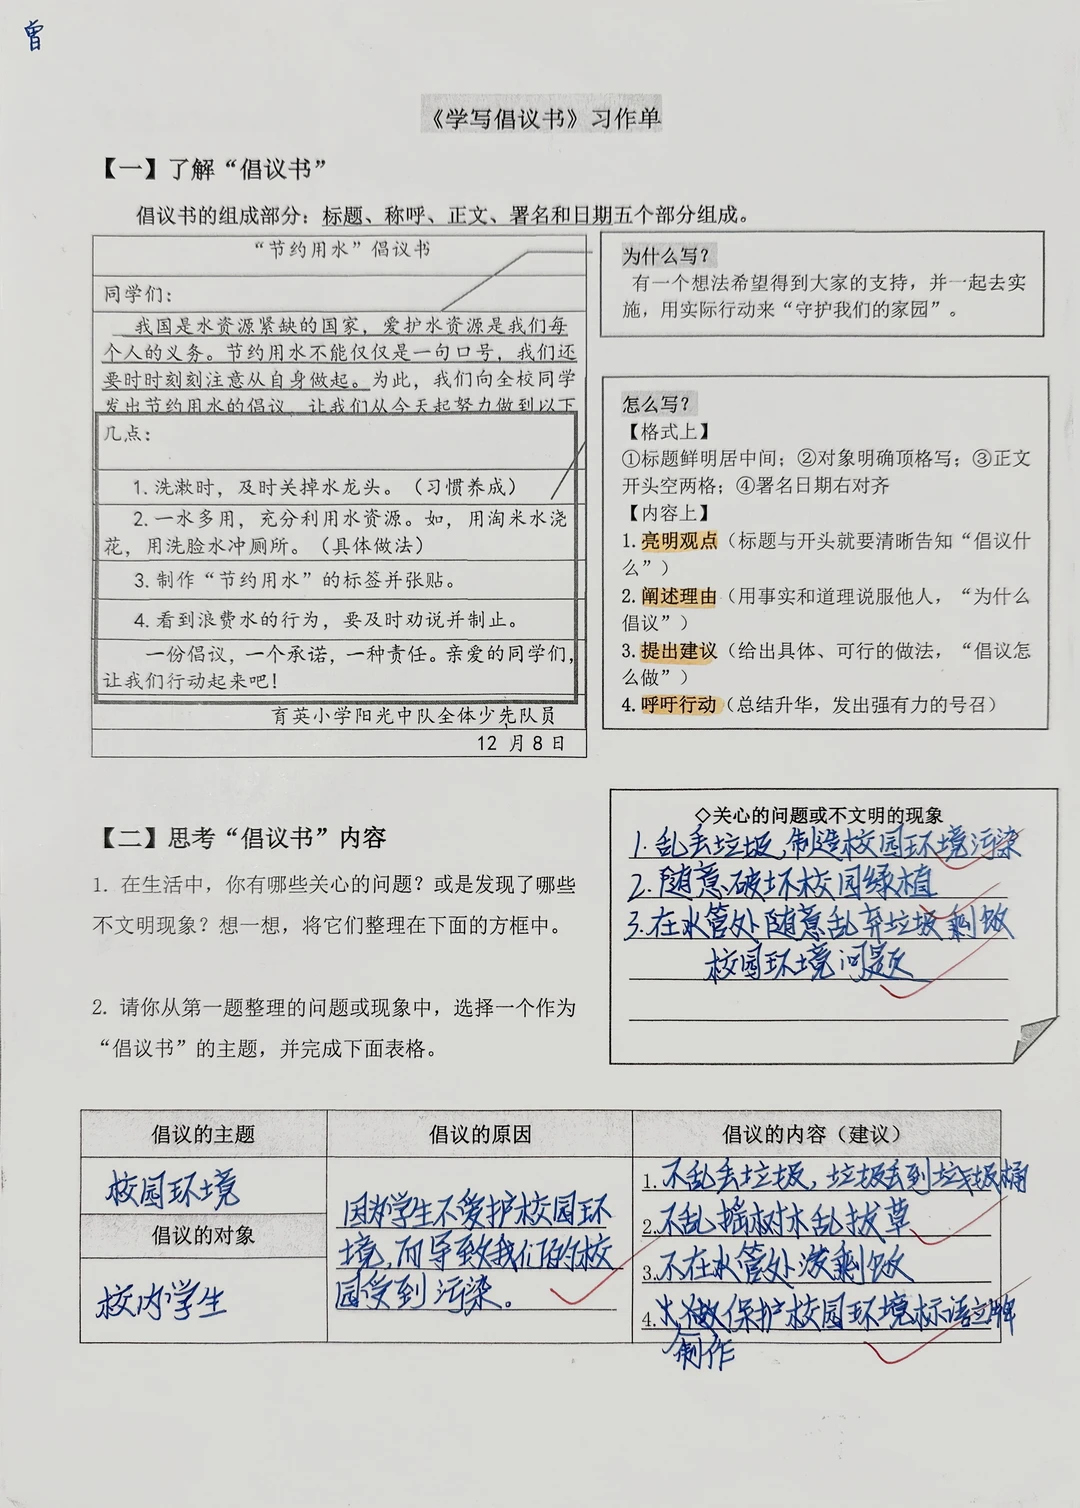 曾
《学写倡议书》习作单
【一】了解“倡议书”
倡议书的组成部分：标题、称呼、正文、署名和日期五个部分组成。
“节约用水”倡议书
同学们：
我国是水资源紧缺的国家，爱护水资源是我们每
个人的义务。节约用水不能仅仅是一句口号，我们还
要时时刻刻注意从自身做起。为此，我们向全校同学
发出节约用水的倡议，让我们从今天起努力做到以下
几点：
1.洗漱时，及时关掉水龙头。（习惯养成）
2.一水多用，充分利用水资源。如，用淘米水浇
花，用洗脸水冲厕所。（具体做法）
3.制作“节约用水”的标签并张贴。
4.看到浪费水的行为，要及时劝说并制止。
一份倡议，一个承诺，一种责任。亲爱的同学们，
让我们行动起来吧！
育英小学阳光中队全体少先队员
12 月 8 日
为什么写？
有一个想法希望得到大家的支持，并一起去实
施，用实际行动来“守护我们的家园”。
怎么写？
【格式上】
①标题鲜明居中间；②对象明确顶格写；③正文
开头空两格；④署名日期右对齐
【内容上】
1.亮明观点（标题与开头就要清晰告知“倡议什
么”）
2.阐述理由（用事实和道理说服他人，“为什么
倡议”）
3.提出建议（给出具体、可行的做法，“倡议怎
么做”）
4.呼吁行动（总结升华，发出强有力的号召）
【二】思考“倡议书”内容
1. 在生活中，你有哪些关心的问题？或是发现了哪些
不文明现象？想一想，将它们整理在下面的方框中。
2. 请你从第一题整理的问题或现象中，选择一个作为
“倡议书”的主题，并完成下面表格。
◇关心的问题或不文明的现象
1.乱丢垃圾，制造校园环境污染
2.随意破坏校园绿植
3.在水管处随意乱弃垃圾剩饭
校园环境问题
倡议的主题
校园环境
倡议的对象
校内学生
倡议的原因
因为学生不爱护校园环
境，而导致我们的校
园受到污染。
倡议的内容（建议）
1.不乱丢垃圾，垃圾丢到垃圾桶
2.不乱摇树木乱拔草
3.不在水管处泼剩饭
4.做保护校园环境标语立牌
制作